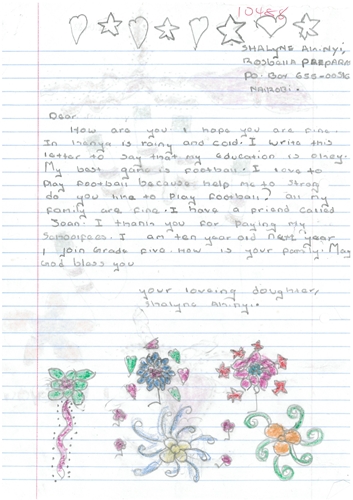 10488
SHALYNE
Rosballa PREPARA
P.O. Box 655-00516
NAIROBI.
Dear
How are you I hope you are fine.
In Kenya is rainy and cold. I write this
letter to say that my education is okey.
My best game is football. I love to
Play Football because help me to strong
do you like to Play Football? all my
family are fine. I have a friend called
Joan. I thank you for paying my
Schoolfees. I am ten year old next year
I join Grade five. How is your family. May
God bless you
your loveing daughter,
Shalyne